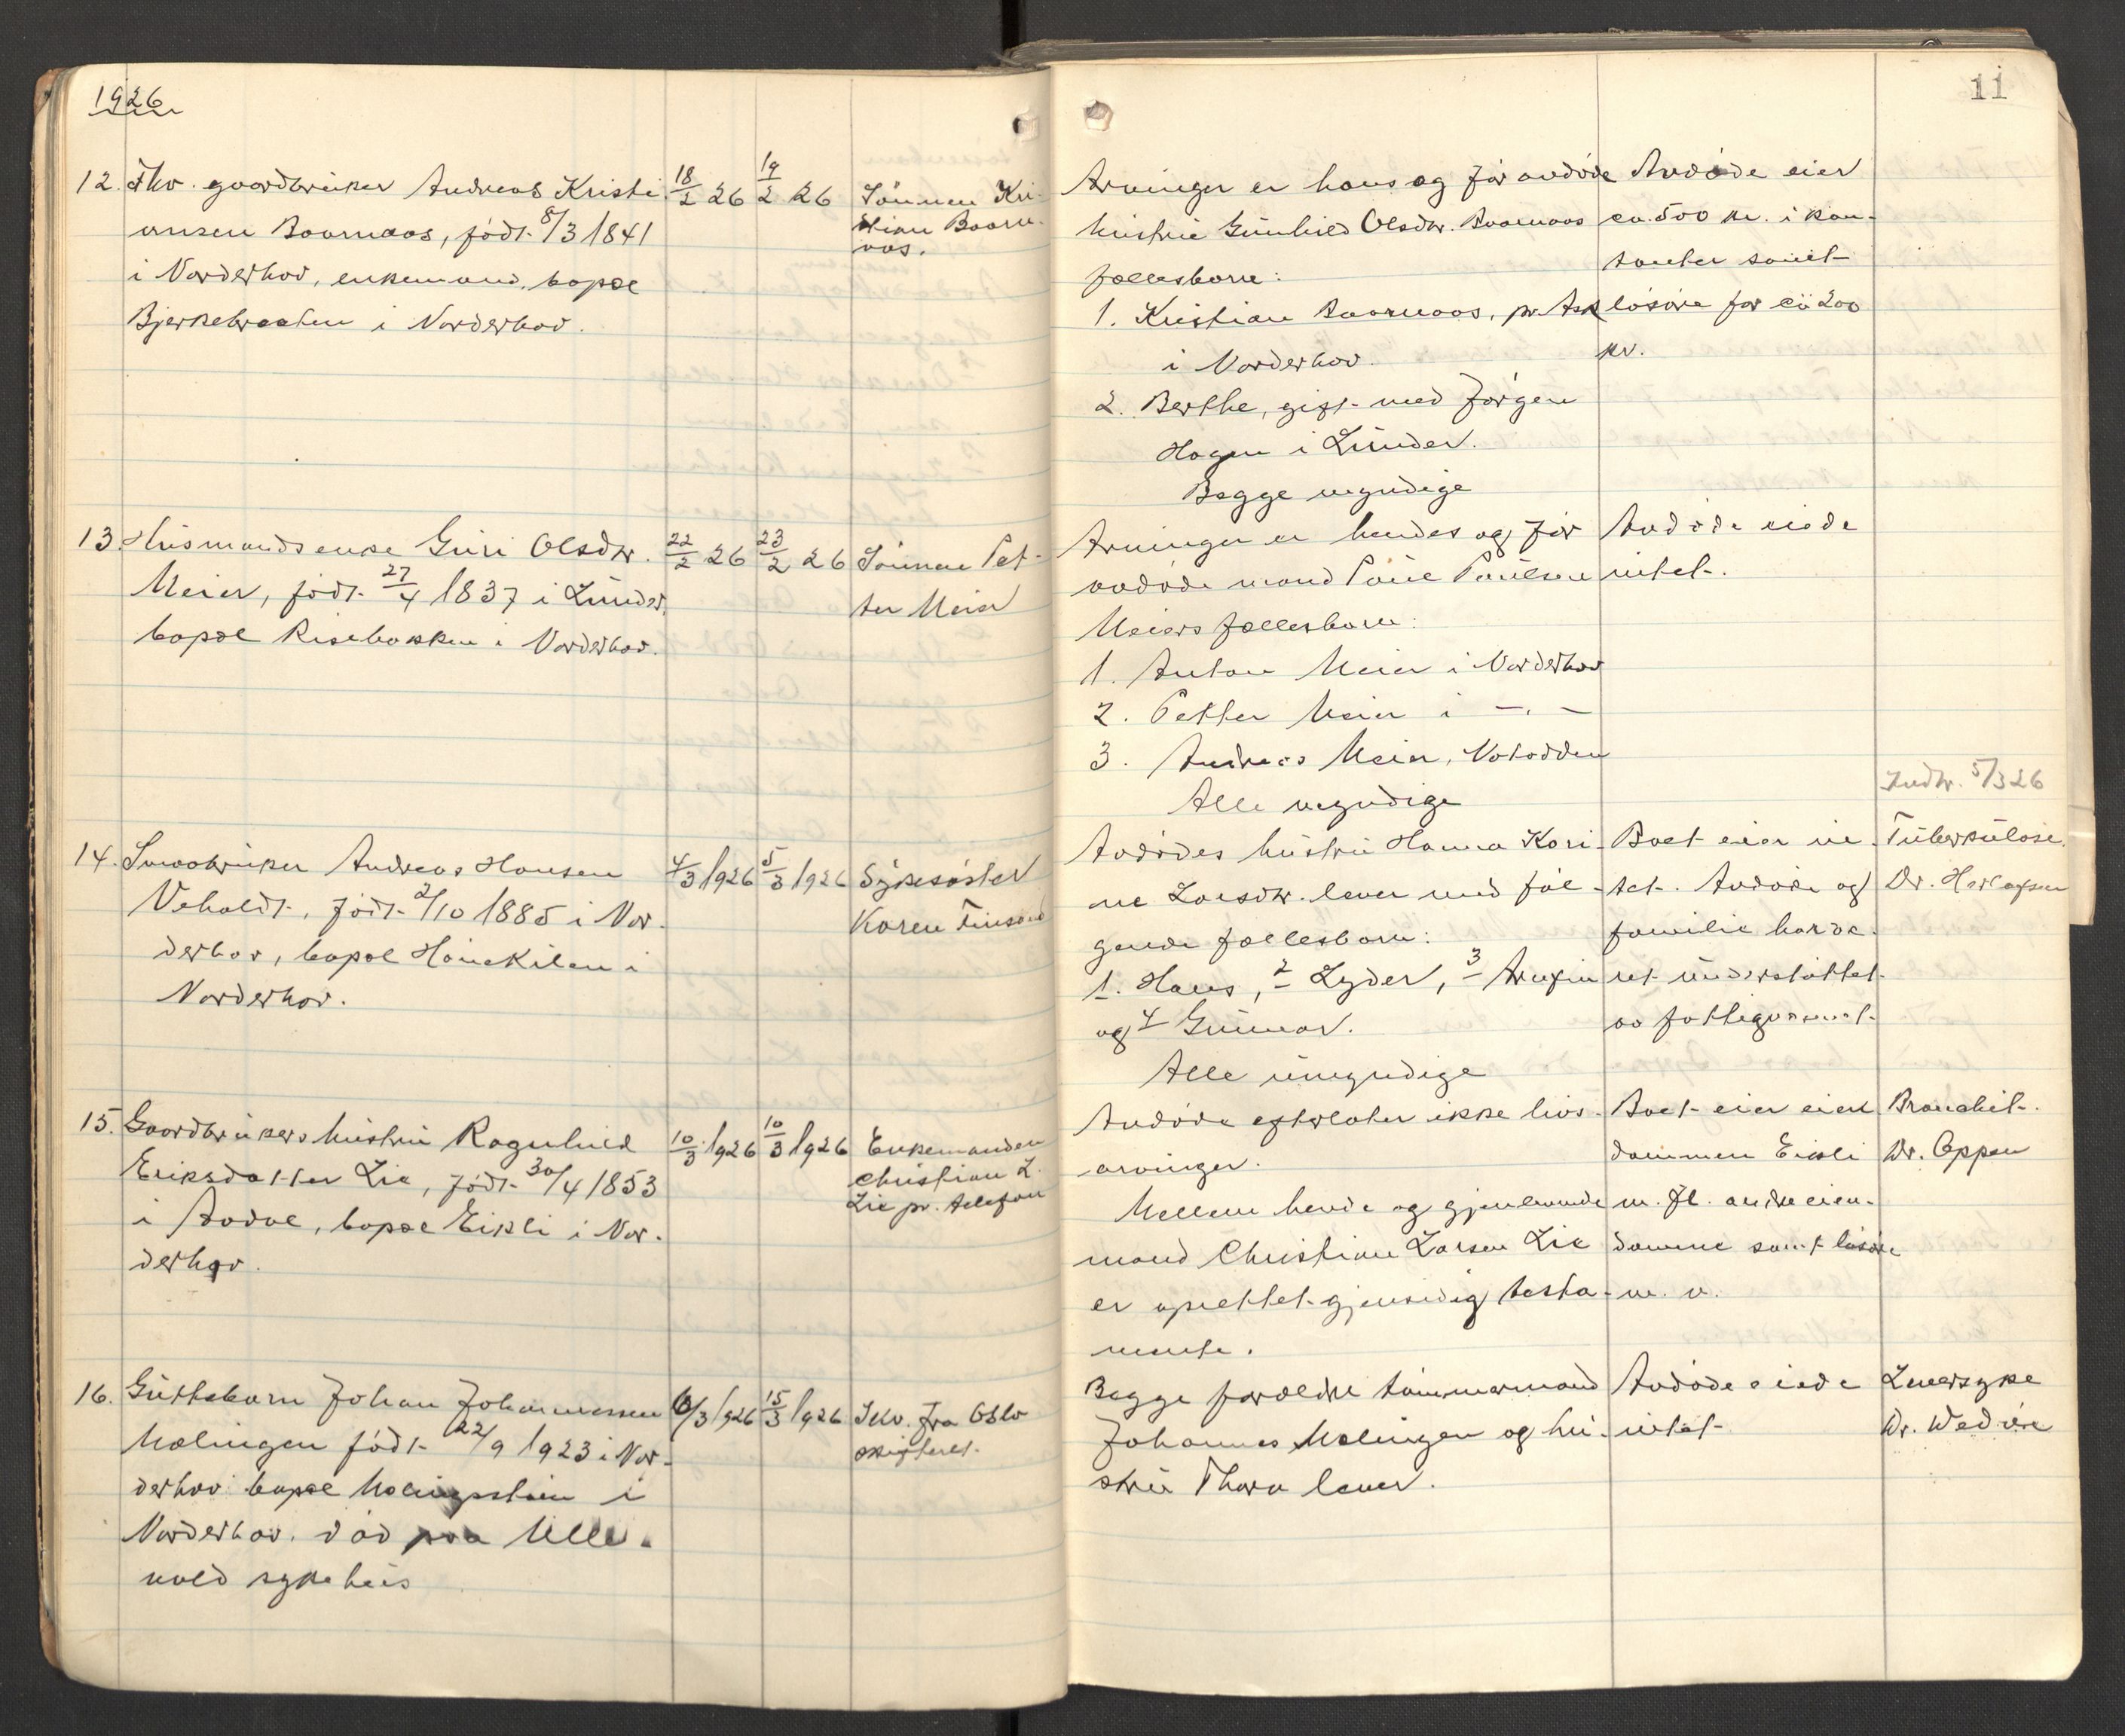 1926
11
12. Fhv. gaardbruker Andreas Kristi-
ansen Baarnaas, födt 8/3 1841
i Norderhov, enkemand, bopæl
Bjerkebraaten i Norderhov.
18/2 26
19/2 26
Sönnen Kri-
stian Baarn-
aas.
Arvinger er hans og för avdöde
hustru Gunhild Olsdtr. Baarnaas
fællesbarn:
1. Kristian Baarnaas, pr. Ask
i Norderhov.
2. Berthe, gift med Jörgen
Hagen i Lunder.
Begge myndige
Avdöde eier
ca. 500 kr. i kon-
tanter samt
lösöre for ca 200
kr.
13. Husmandsenke Guri Olsdtr.
Meier, födt 27/4 1837 i Lunder,
bopæl Risebakken i Norderhov.
22/2 26
23/2 26
Sönnen Pet-
ter Meier
Arvinger er hendes og för
avdöde mand Paul Paulsen
Meiers fællesbarn:
1. Anton Meier i Norderhov
2. Petter Meier i —.—
3. Andreas Meier, Notodden
Alle myndige
Avdöde eiede
intet.
Indb. 5/3 26
14. Småbruker Andreas Hansen
Veholdt, födt 2/10 1885 i Nor-
derhov, bopæl Hönekilen i
Norderhov.
4/3 1926
5/3 1926
Sykesöster
Karen Finsand
Avdödes hustru Hanna Kari-
ne Larsdtr. lever med föl-
gende fællesbarn:
1. Hans, 2 Lyder, 3 Arnfin
og 4 Gunnar.
Alle umyndige
Boet eier in-
tet. Avdöde og
familie har væ-
ret understöttet
av fattigvæsenet.
Tuberkulose.
Dr.
15. Gaardbrukers hustru Ragnhild
Eriksdatter Lie, födt 30/4 1853
i Aadal, bopæl Eikli i Nor-
derhov.
10/3 1926
10/3 1926
Enkemanden
Christian L.
Lie pr. telefon
Avdöde efterlater ikke livs-
arvinger.
Mellem hende og gjenlevende
mand Christian Larsen Lie
er oprettet gjensidig testa-
mente.
Boet eier eien-
dommen Eikli
m. fl. andre eien-
domme samt lösöre
m. v.
Bronchit.
Dr. Oppen
16. Guttebarn Johan Johannessen
Mælingen födt 22/9 1923 i Nor-
derhov bopæl Mælingsstuen i
Norderhov. död paa Ulle-
vold sykehus
6/3 1926
15/3 1926
Skv. fra Oslo
skifteret.
Begge forældre tömmermand
Johannes Mælingen og hu-
stru Thora lever.
Avdöde eiede
intet
Leversyke
Dr.